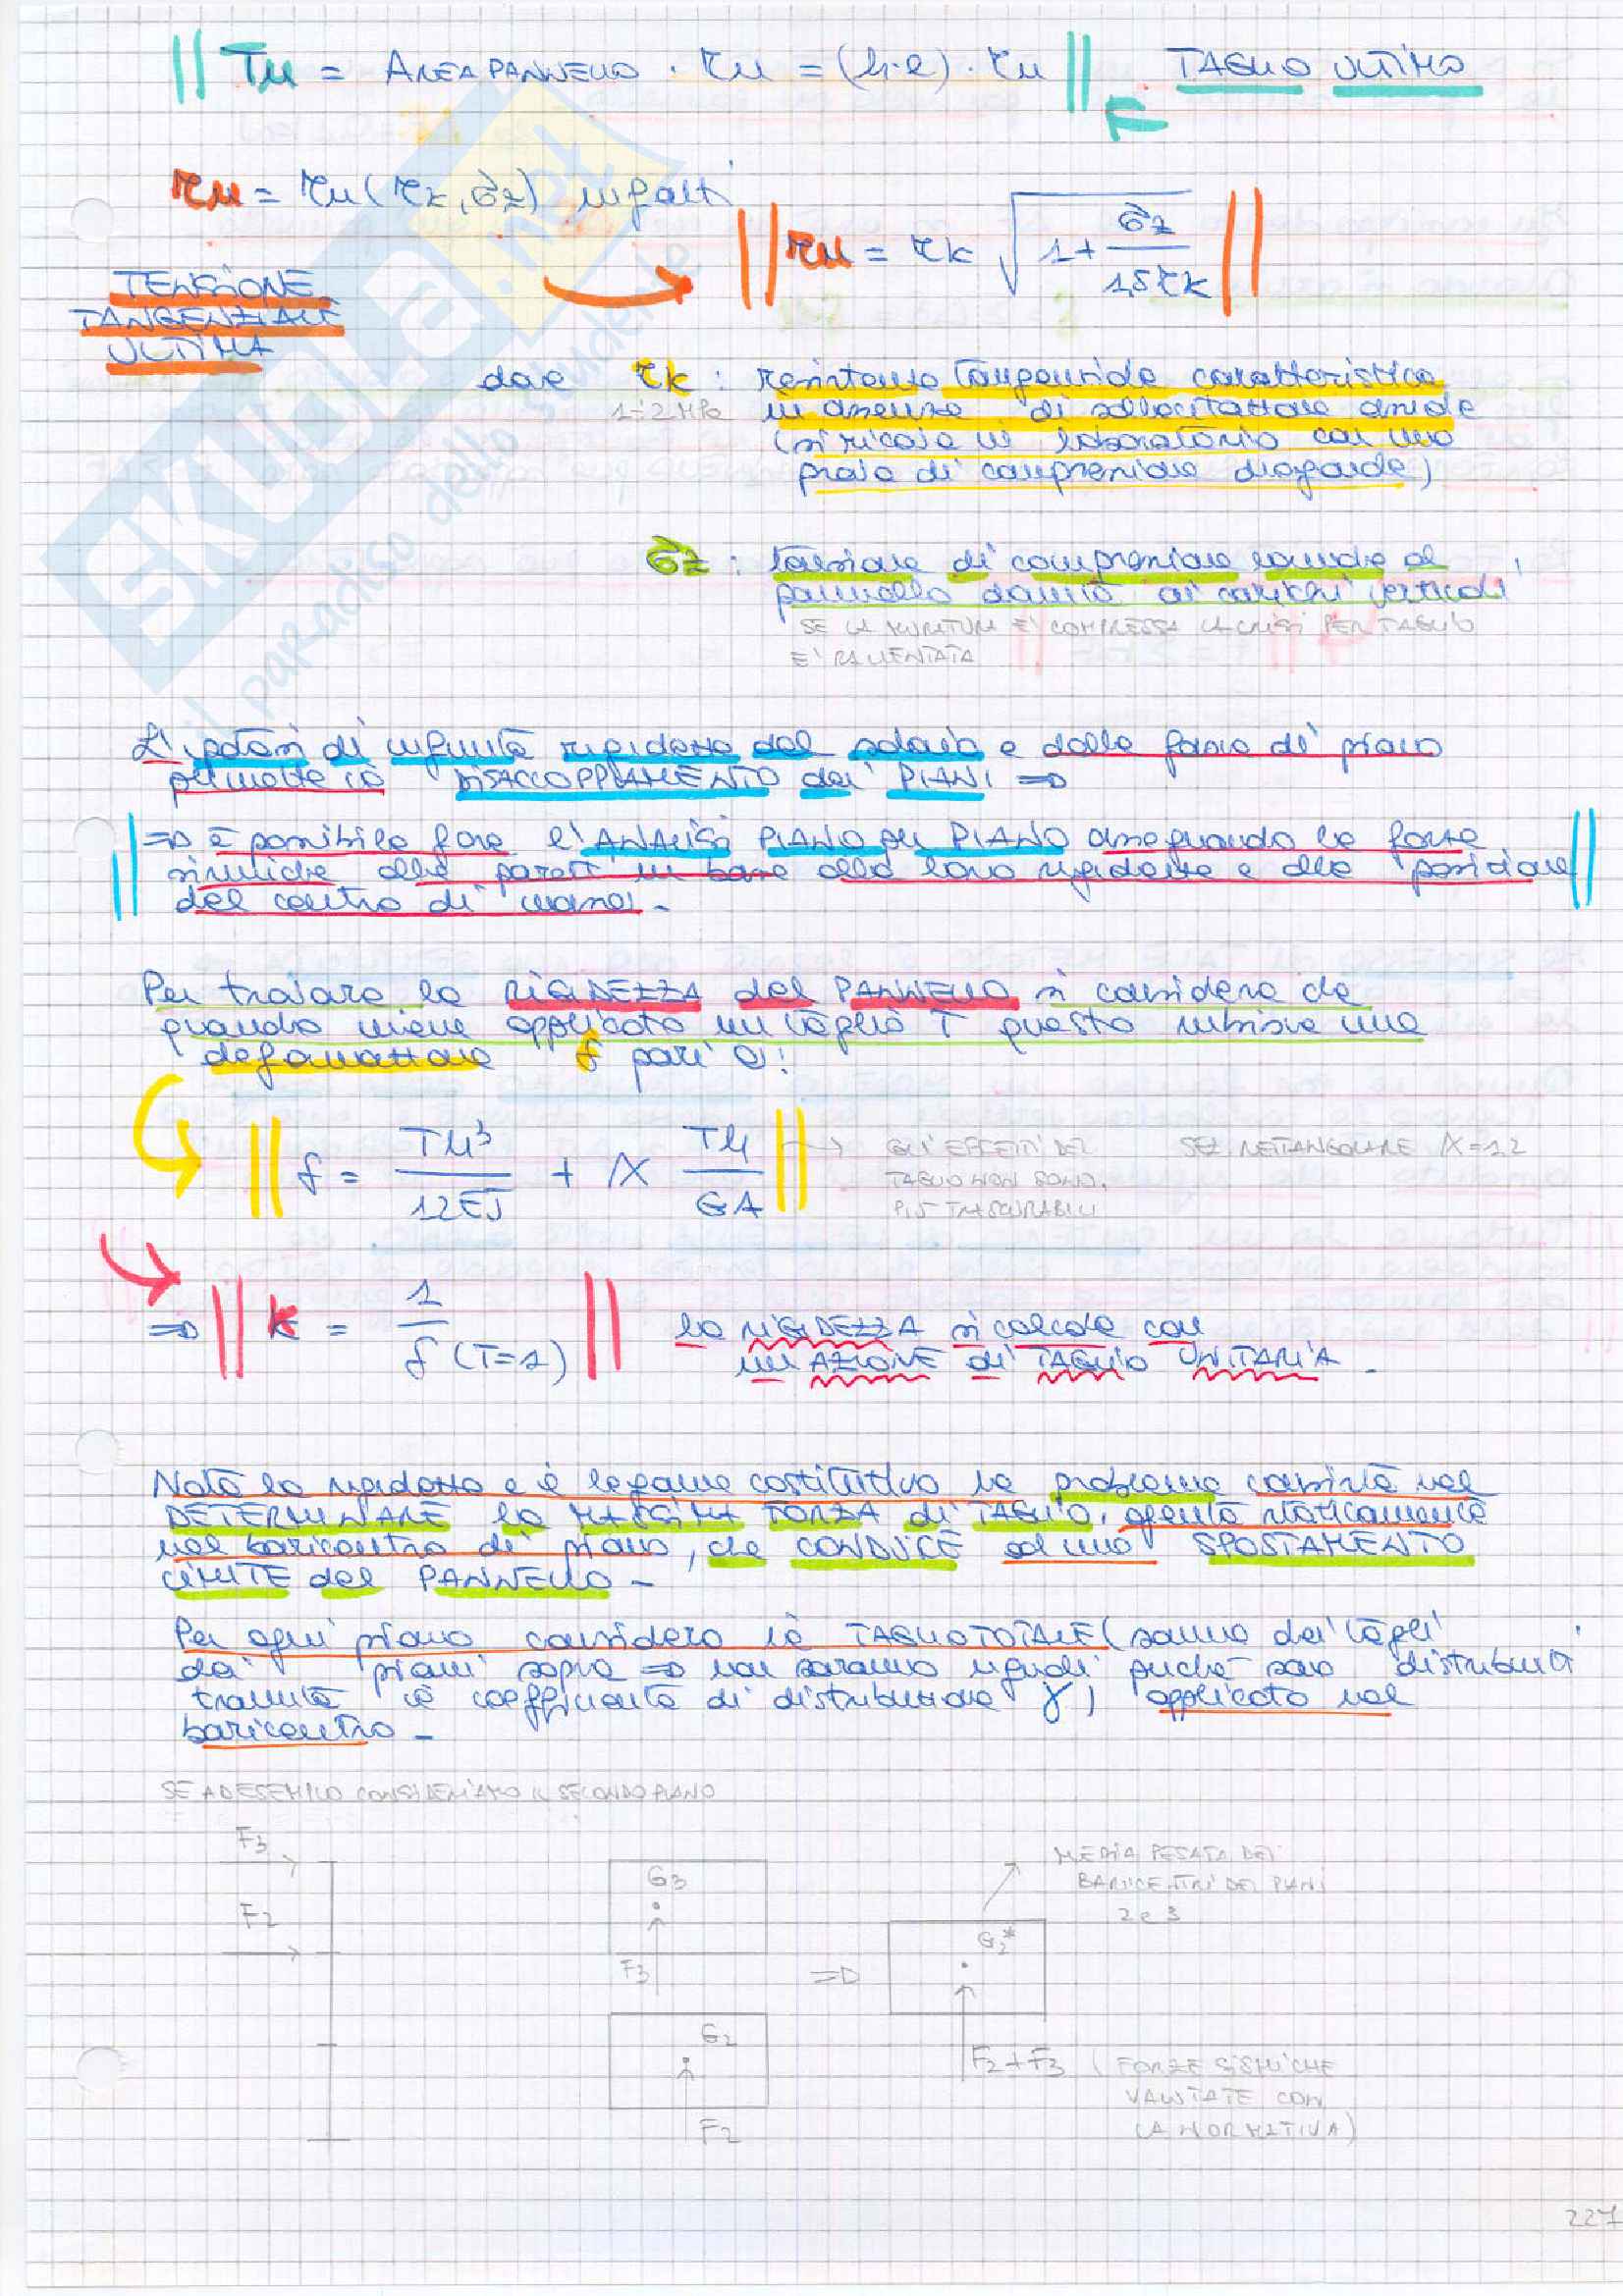 Tu = AREA PANNELLO · τu = (h·l) · τu TAGLIO ULTIMO
τu = τu (τk, σz) infatti
τu = τk √(1 + σz / 1,5 τk)
TENSIONE
TANGENZIALE
ULTIMA
dove τk : resistenza tangenziale caratteristica
1÷2 MPa in assenza di sollecitazione assiale
(si ricava in laboratorio con una
prova di compressione diagonale)
σz : tensione di compressione lungo il
pannello dovuta ai carichi verticali
SE LA MURATURA E' COMPRESSA LA CRISI PER TAGLIO
E' RALLENTATA
L'ipotesi di infinita rigidezza del solaio e delle fasce di piano
permette il DISACCOPPIAMENTO dei PIANI ⇒
⇒ è possibile fare l'ANALISI PIANO per PIANO assegnando le forze
sismiche alle pareti in base alla loro rigidezza e alla posizione
del centro di massa.
Per trovare la RIGIDEZZA del PANNELLO si considera che
quando viene applicato un taglio T questo subisce una
deformazione f pari a:
f = Th³ / 12EJ + χ Th / GA → GLI EFFETTI DEL SEZ. RETTANGOLARE χ=1,2
TAGLIO NON SONO
PIÙ TRASCURABILI
⇒ k = 1 / f (T=1) la RIGIDEZZA si calcola con
un'AZIONE di TAGLIO UNITARIA.
Nota la rigidezza e il legame costitutivo il problema consiste nel
DETERMINARE la MASSIMA FORZA di TAGLIO, agente staticamente
nel baricentro di piano, che CONDUCE ad uno SPOSTAMENTO
LIMITE del PANNELLO -
Per ogni piano considero il TAGLIO TOTALE (somma dei tagli
dei piani sopra ⇒ non saranno uguali perché sono distribuiti
tramite il coefficiente di distribuzione γ) applicato nel
baricentro -
SE AD ESEMPIO CONSIDERIAMO IL SECONDO PIANO
F3
F2
G3
F3
G2
F2
⇒
MEDIA PESATA DEI
BARICENTRI DEI PIANI
2 e 3
G2*
F2+F3 (FORZE SISMICHE
VALUTATE CON
LA NORMATIVA)
227
SKUOLA.net
il paradiso dello studente